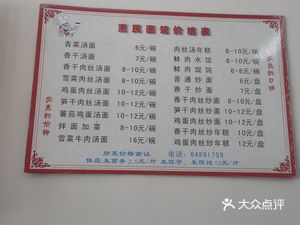 惠民面馆价格表
青菜汤面 6元/碗
香干汤面 7元/碗
香干肉丝汤面 8-10元/碗
雪菜肉丝汤面 8-10元/碗
鸡蛋肉丝汤面 10-12元/碗
笋干肉丝汤面 10-12元/碗
番茄鸡蛋汤面 10-12元/碗
拌面加菜 8-10元/碗
雪菜牛肉汤面 10元/碗
肉丝汤年糕 8-10元/碗
鲜肉水饺 8-10元/碗
鲜肉馄饨 6-8元/碗
普通炒面 6元/盘
香干炒面 7元/盘
香干肉丝炒面 8-10元/盘
鸡蛋肉丝炒面 10-12元/盘
笋干肉丝炒面 10-12元/盘
香干肉丝炒年糕 10元/盘
鸡蛋肉丝炒年糕 12元/盘
实惠的价格
炒菜价格面议 电话:64891759
供应:生面条2.5元/斤 生饺子、生馄饨15元/斤
大众点评